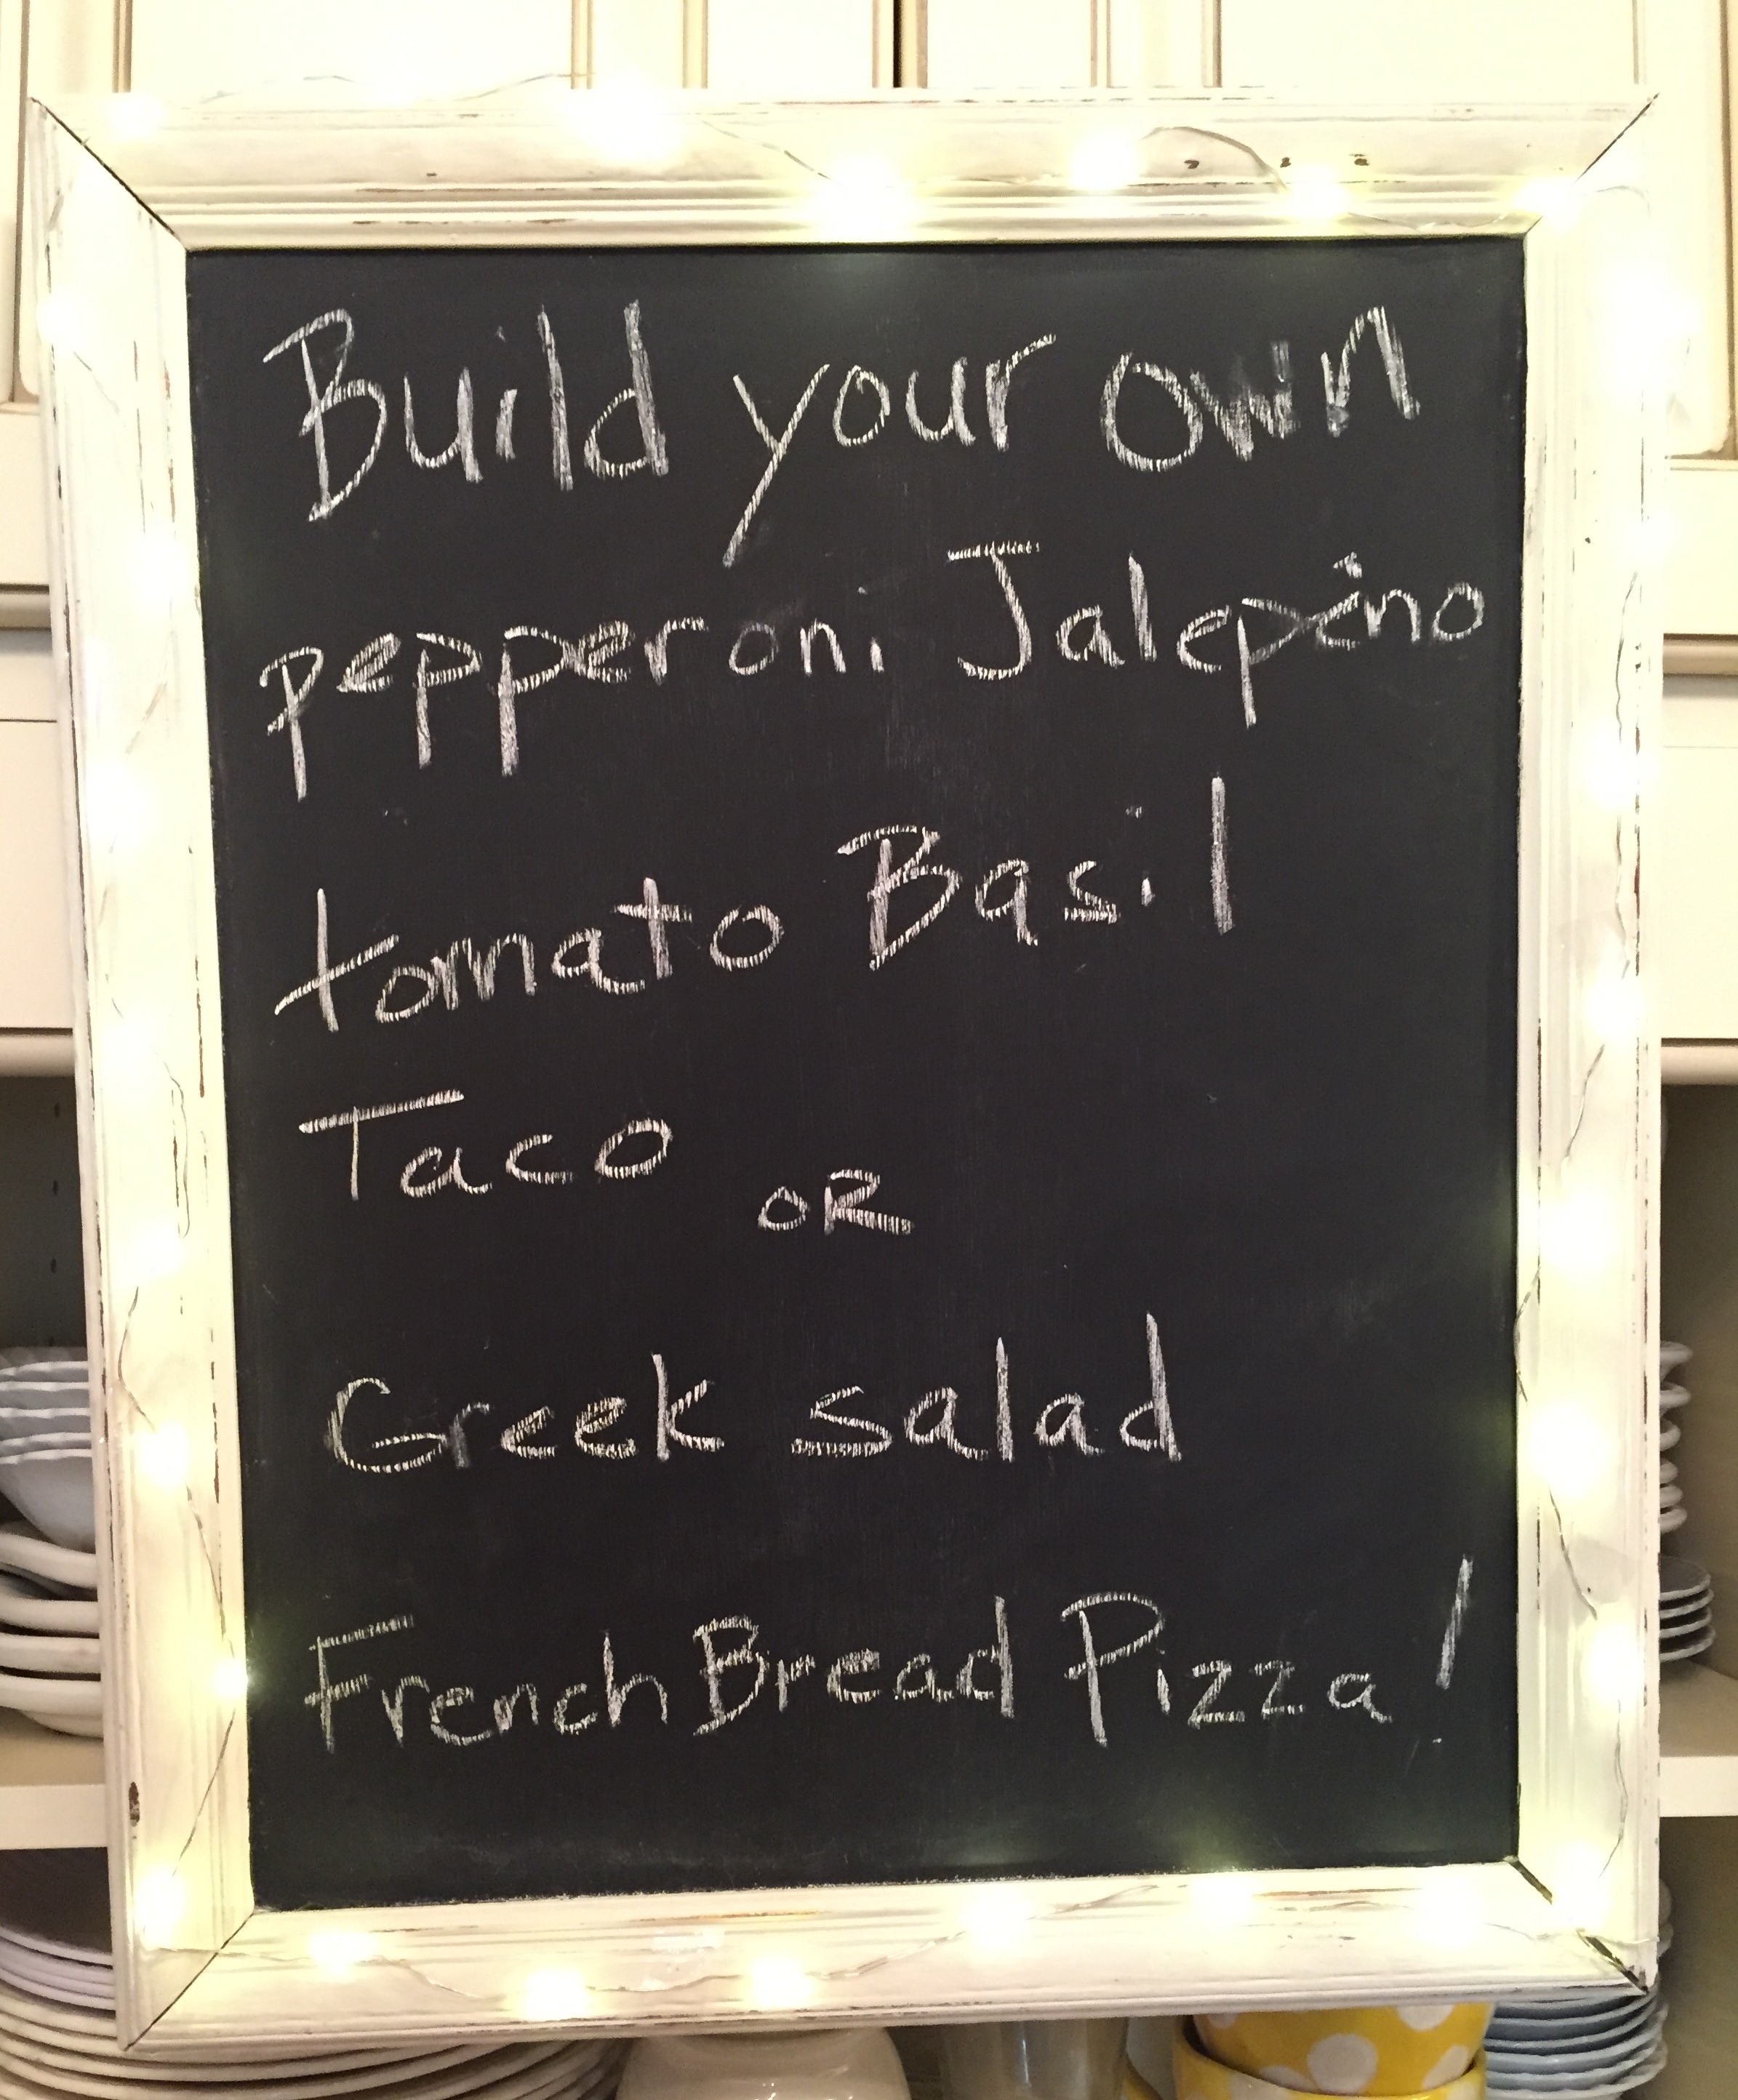 Build your own
pepperoni Jalepeino
tomato Basil
Taco
OR
Greek salad
French Bread Pizza!